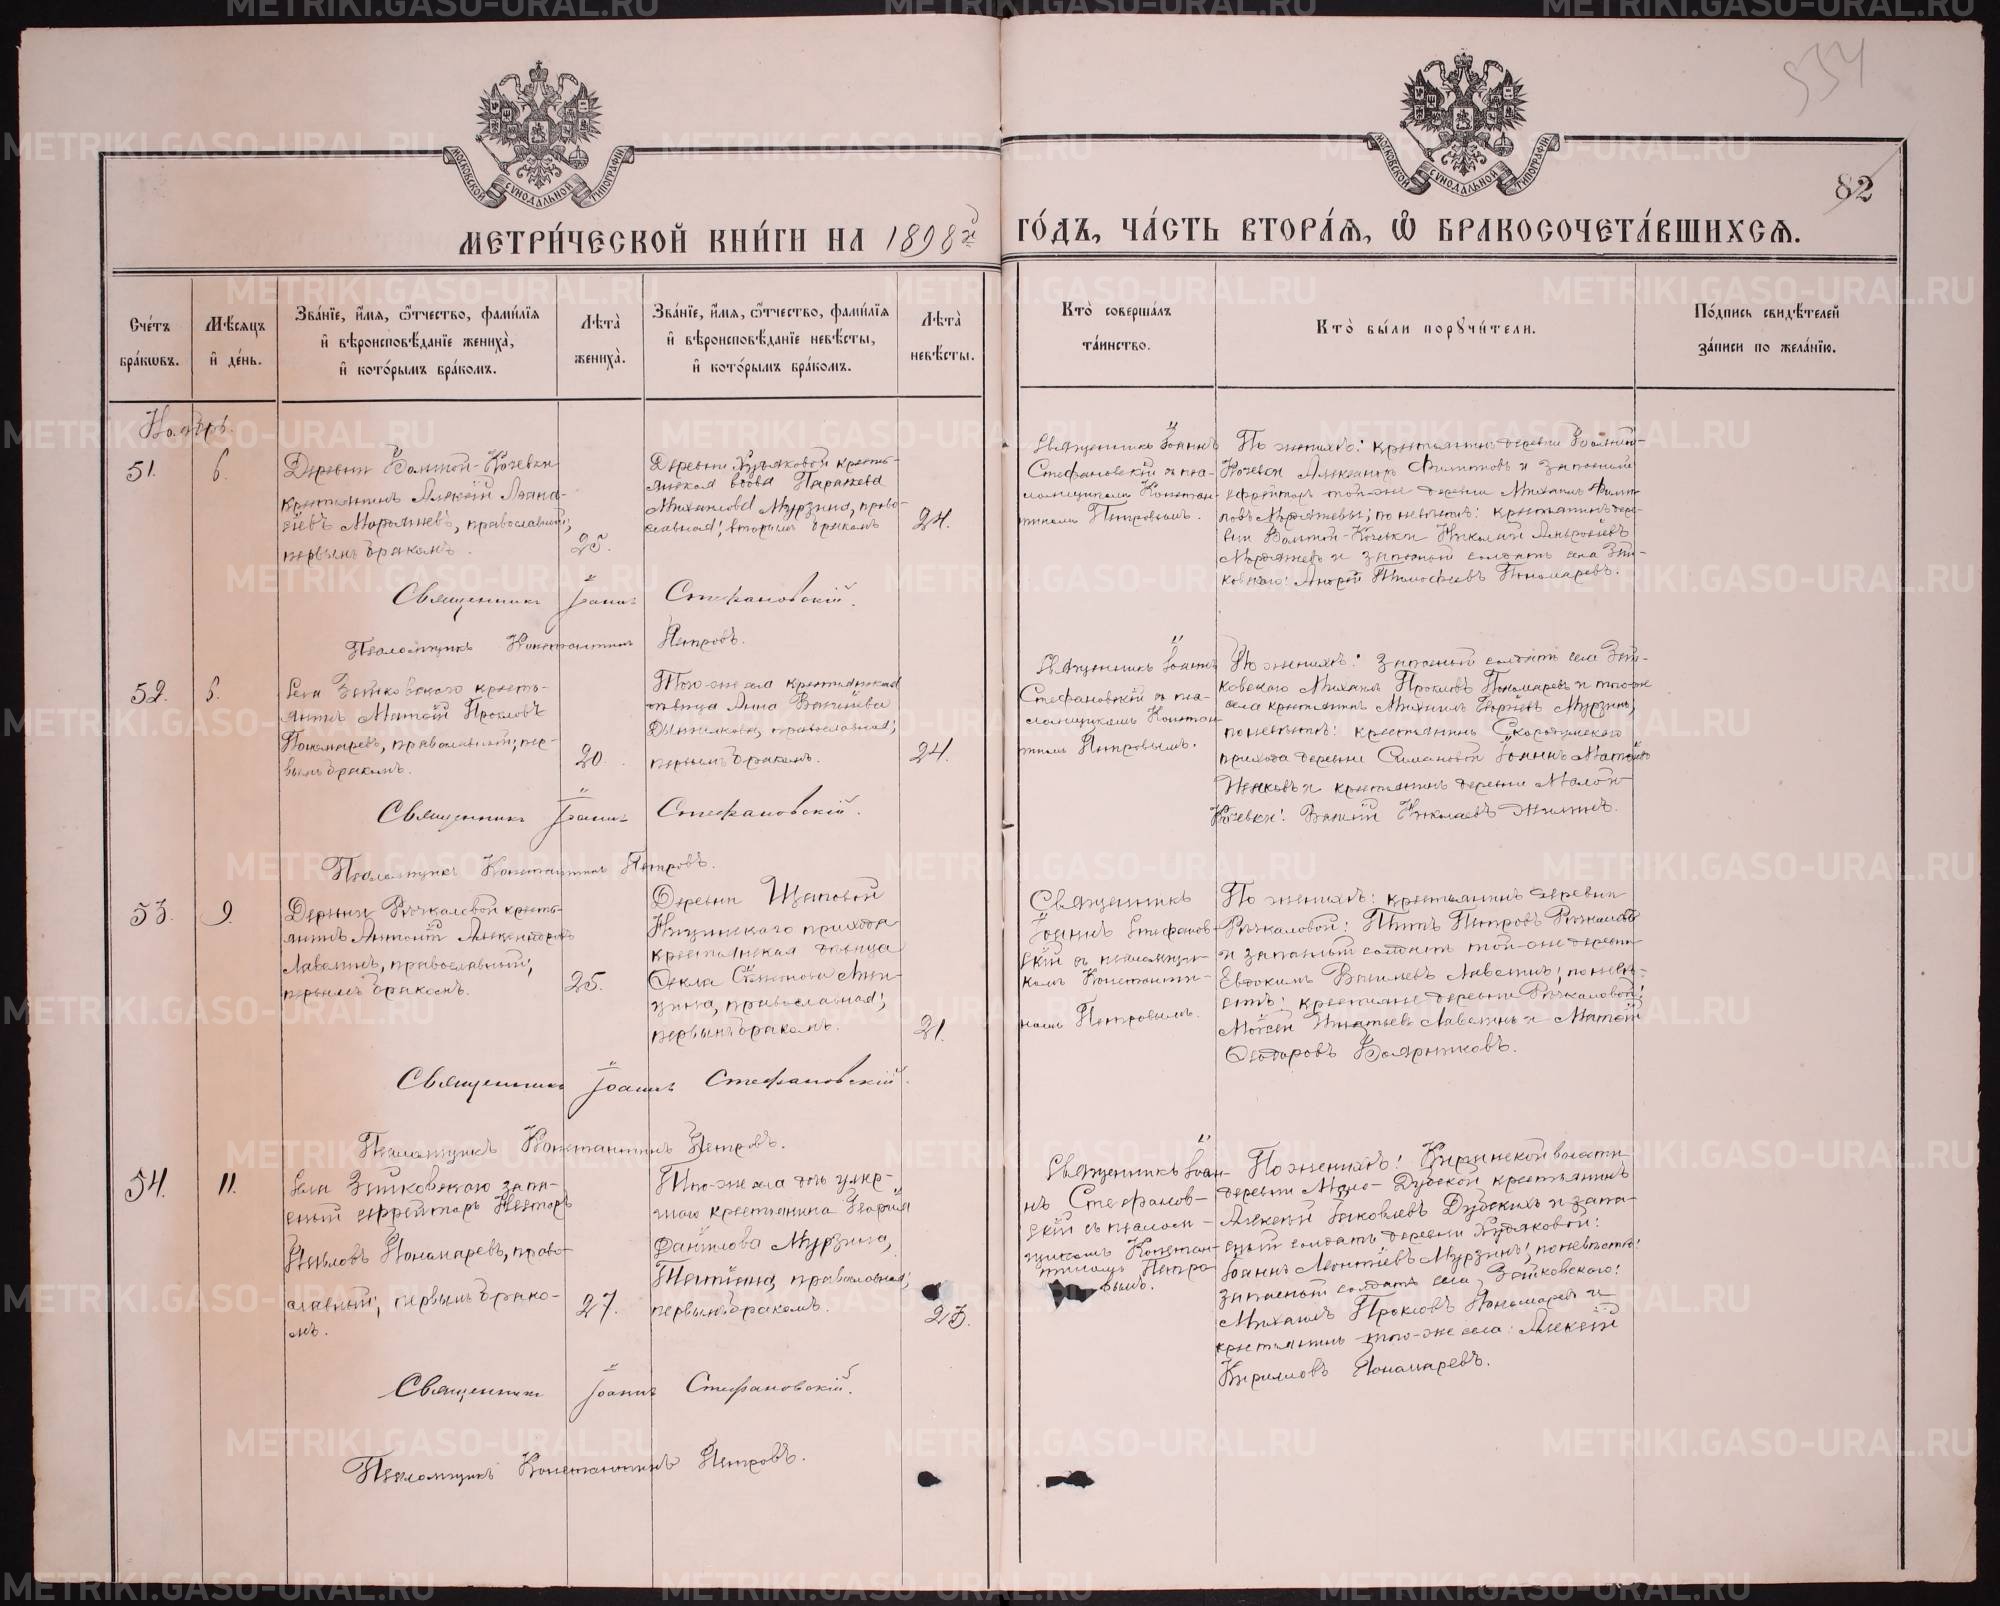 534
82
МОСКОВСКОЙ СѴНОДАЛЬНОЙ ТИПОГРАФІИ
МОСКОВСКОЙ СѴНОДАЛЬНОЙ ТИПОГРАФІИ
МЕТРИ́ЧЕСКОЙ КНИ́ГИ НА 1898й ГО́ДЪ, ЧА́СТЬ ВТОРА́Я, Ѡ БРАКОСОЧЕТА́ВШИХСЯ.
Сче́тъ бра́кѡвъ.
Мѣ́сяцъ и де́нь.
Зва́нїе, и́мя, ѻ҆́тчество, фами́лїя и вѣроисповѣ́данїе жениха̀, и кото́рымъ бра́комъ.
Лѣ́та жениха̀.
Зва́нїе, и́мя, ѻ҆́тчество, фами́лїя и вѣроисповѣ́данїе невѣ́сты, и кото́рымъ бра́комъ.
Лѣ́та невѣ́сты.
Кто̀ соверша́лъ та́инство.
Кто̀ бы́ли порꙋчи́тели.
По́дпись свидѣ́телей за́писи по жела́нїю.
Ноябрь.
51.
6.
Деревни Большой-Кочевки
крестьянинъ Алексій Аѳана-
сіевъ, православный,
первымъ бракомъ.
25.
Деревни Худяковой кресть-
янская вдова
Михаилова Мурзина, право-
славная; вторымъ бракомъ
24.
Священникъ Іоаннъ
Стефановскій съ пса-
ломщикомъ Констан-
тиномъ Петровымъ.
По женихѣ: крестьянинъ деревни Большой-
Кочевки Александръ Филипповъ и запасный
ефрейторъ той-же деревни Михаилъ
по невѣстѣ: крестьянинъ дере-
вни Большой-Кочевки Николай
и запасный солдатъ села Зай-
ковскаго: Андрей Тимофеевъ Пономаревъ.
Священникъ Іоаннъ Стефановскій.
Псаломщикъ Константинъ Петровъ.
52.
6.
Села Зайковскаго кресть-
янинъ Матѳій Прокловъ
Пономаревъ, православный; пер-
вымъ бракомъ.
20.
Того-же села крестьянская
дѣвица Анна
православная;
первымъ бракомъ.
24.
Священникъ Іоаннъ
Стефановскій съ пса-
ломщикомъ Констан-
тиномъ Петровымъ.
По женихѣ: запасный солдатъ села Зай-
ковскаго Михаилъ Прокловъ Пономаревъ и того-же
села крестьянинъ Михаилъ Мурзинъ;
по невѣстѣ: крестьянинъ Скородумскаго
прихода деревни Симановой Іоаннъ
и крестьянинъ деревни Малой-
Кочевки: Николаевъ
Священникъ Іоаннъ Стефановскій.
Псаломщикъ Константинъ Петровъ.
53.
9.
Деревни Речкаловой кресть-
янинъ Александровъ
Лавелинъ, православный;
первымъ бракомъ.
25.
Деревни Щаповой
Ницинскаго прихода
крестьянская дѣвица
православная;
первымъ бракомъ.
21.
Священникъ
Іоаннъ Стефанов-
скій съ псаломщи-
комъ Константи-
номъ Петровымъ.
По женихѣ: крестьянинъ деревни
Речкаловой: Петровъ Речкаловъ
и запасный солдатъ той-же деревни
Евдокимъ Васильевъ по невѣ-
стѣ: крестьяне деревни Речкаловой:
Мойсей Игнатьевъ и Матѳій
Ѳеодоровъ Боярниковъ.
Священникъ Іоаннъ Стефановскій.
Псаломщикъ Константинъ Петровъ.
54.
11.
Села Зайковскаго запа-
сный ефрейторъ Несторъ
Пономаревъ, право-
славный; первымъ брако-
мъ.
27.
Того-же села дочь умер-
шаго крестьянина Георгія
Мурзина,
православная;
первымъ бракомъ.
23.
Священникъ Іоан-
нъ Стефанов-
скій съ псалом-
щикомъ Констан-
тиномъ Петро-
вымъ.
По женихѣ: Киргинской волости
деревни Дубской крестьянинъ
Алексѣй Яковлевъ Дубскихъ и запа-
сный солдатъ деревни Худяковой:
Іоаннъ Леонтіевъ Мурзинъ; по невѣстѣ:
запасный солдатъ села Зайковскаго:
Михаилъ Прокловъ Пономаревъ и
крестьянинъ того-же села: Алексѣй
Кирилловъ Пономаревъ.
Священникъ Іоаннъ Стефановскій.
Псаломщикъ Константинъ Петровъ.
METRIKI.GASO-URAL.RU